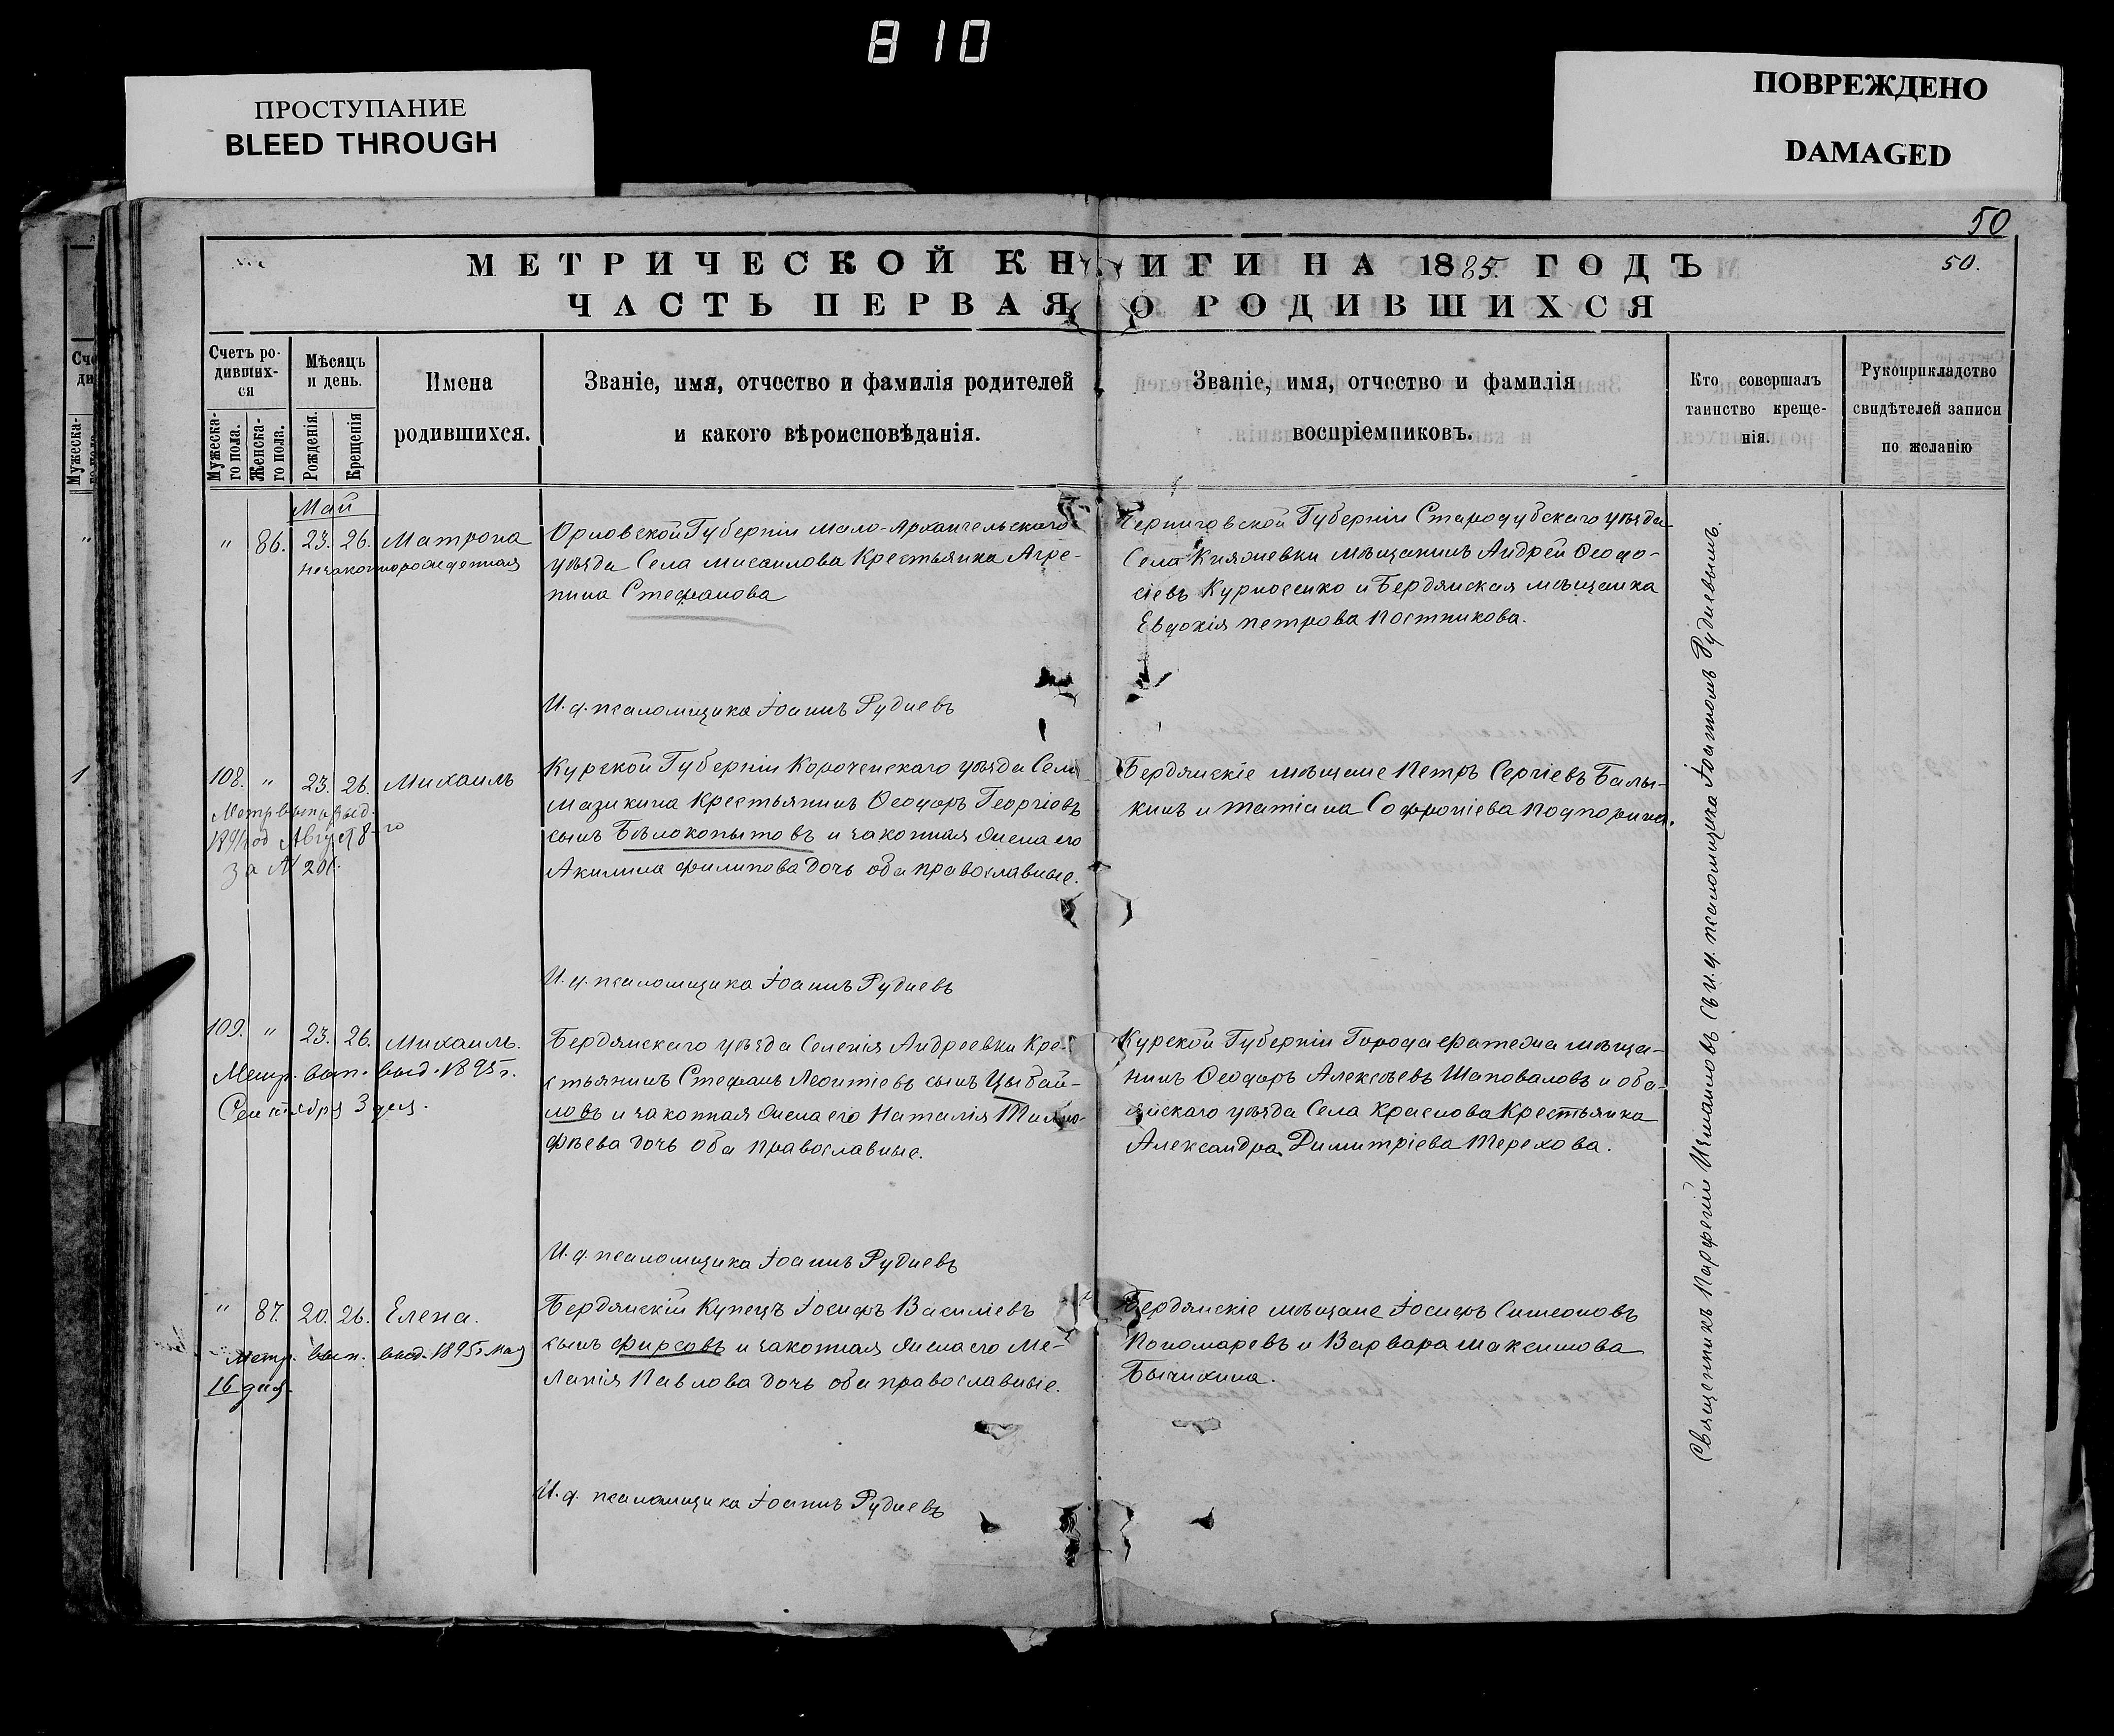 810
ПРОСТУПАНИЕ
BLEED THROUGH
ПОВРЕЖДЕНО
DAMAGED
50
50.
МЕТРИЧЕСКОЙ КНИГИ НА 1885. ГОДЪ
ЧАСТЬ ПЕРВАЯ О РОДИВШИХСЯ
Счетъ ро-
дивших-
ся
Мужеска-
го пола.
Женска-
го пола.
Мѣсяцъ
и день.
Рожденія.
Крещенія
Имена
родившихся.
Званіе, имя, отчество и фамилія родителей
и какого вѣроисповѣданія.
Званіе, имя, отчество и фамилія
воспріемниковъ.
Кто совершалъ
таинство креще-
нія.
Рукоприкладство
свидѣтелей записи
по желанію
Май
" 86. 23. 26. Матрона
незаконнорожденная
Орловской Губерніи Мало-Архангельскаго
уѣзда Села Мисаилова Крестьянка Агре-
пина Стефанова
Черниговской Губерніи Стародубскаго уѣзда
Села Княжевки мѣщанинъ Андрей Ѳеодо-
сіевъ Курносенко и Бердянская мѣщанка
Евдокія Петрова Постникова.
И. д. псаломщика Іоаннъ Рудневъ
108. " 23. 26. Михаилъ
Метр. вып. выд.
Август 8-го
За № 201.
Курской Губерніи Короченскаго уѣзда Села
Мазикина Крестьянинъ Ѳеодоръ Георгіевъ
сынъ Бѣлокопытовъ и законная жена его
Акилина Филипова дочь оба православные.
Бердянскіе мѣщане Петръ Сергіевъ Балы-
кинъ и Татіана Софроніева Подпорина.
И. д. псаломщика Іоаннъ Рудневъ
109. " 23. 26. Михаилъ.
Метр. вып. выд. 1895 г.
Сентября 3 дня.
Бердянскаго уѣзда Селенія Андреевки Кре-
стьянинъ Стефанъ Леонтіевъ сынъ Цыбай-
ловъ и законная жена его Наталія Тимо-
фѣева дочь оба православные.
Курской Губерніи Города Фатежа мѣща-
нинъ Ѳеодоръ Алексѣевъ Шаповаловъ и обо-
янскаго уѣзда Села Краснова Крестьянка
Александра Димитріева Терехова.
И. д. псаломщика Іоаннъ Рудневъ
" 87. 20. 26. Елена.
Метр. вып. выд. 1895 г. мая
16 дня.
Бердянскій Купецъ Іосифъ Василіевъ
сынъ Фирсовъ и законная жена его Ме-
ланія Павлова дочь оба православные.
Бердянскіе мѣщане Іосифъ Симеоновъ
Пономаревъ и Варвара Максимова
Бычихина.
И. д. псаломщика Іоаннъ Рудневъ
Священникъ Парфеній съ и. д. псаломщика Іоанномъ Рудневымъ.